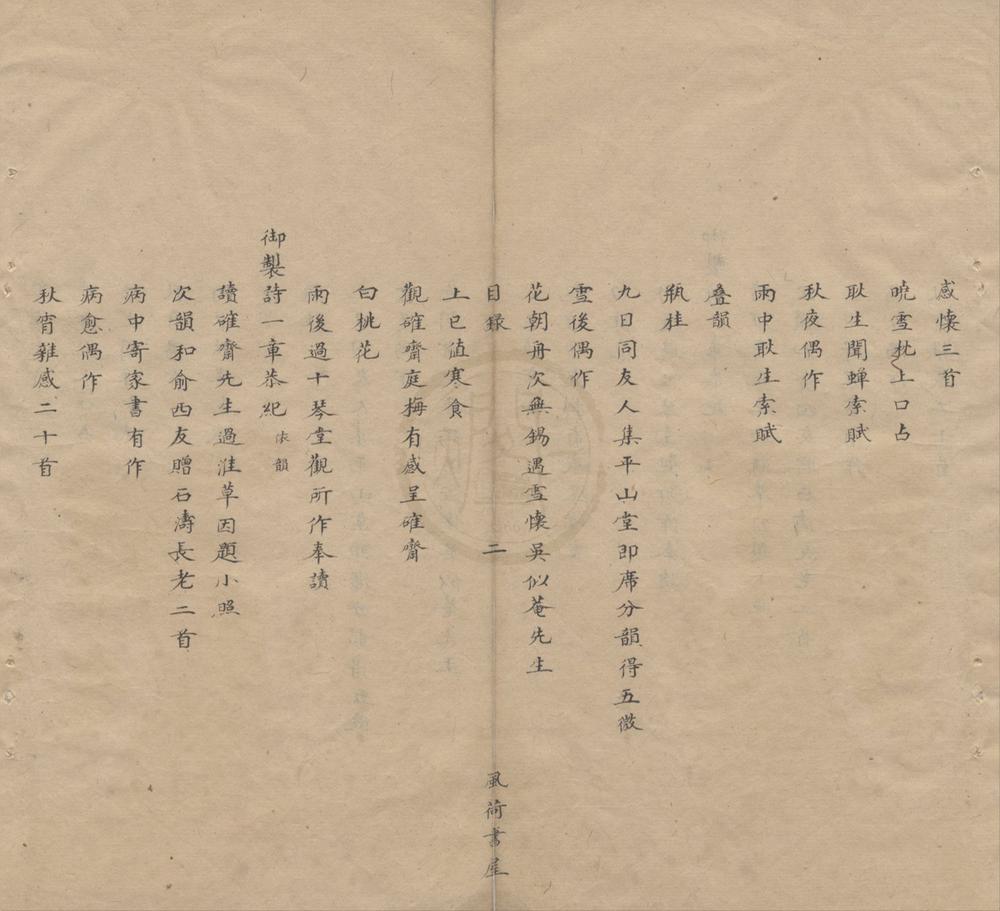 感懷三首
曉雪枕上口占
耿生聞蟬索賦
秋夜偶作
雨中耿生索賦
叠韻
瓶桂
九日同友人集平山堂即席分韻得五微
雪後偶作
花朝舟次無錫遇雪懷吳似菴先生
目錄 二 風荷書屋
上巳值寒食
觀確齋庭梅有感呈確齋
白桃花
雨後過十琴堂觀所作奉讀
御製詩一章恭紀 依韻
讀確齋先生過淮草因題小照
次韻和俞西友贈石濤長老二首
病中寄家書有作
病愈偶作
秋宵雜感二十首